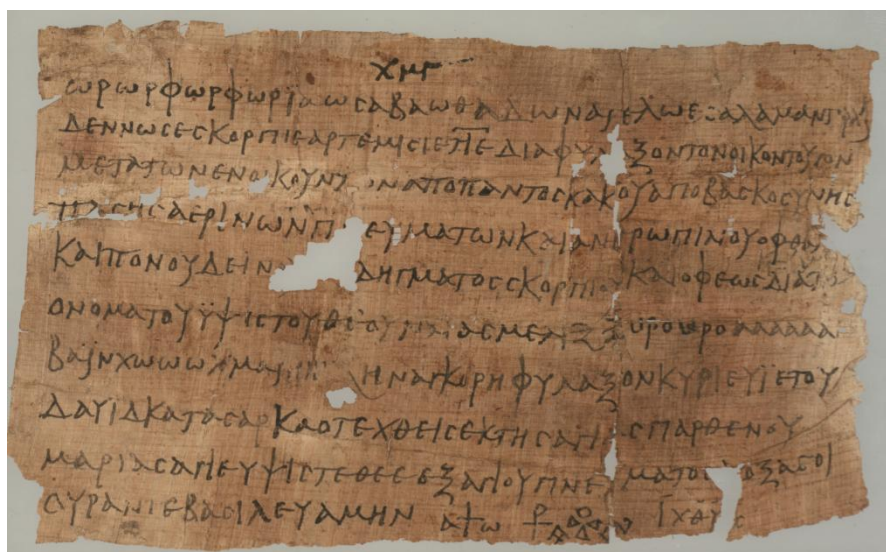 χμγ
ωρωρφωρφωρϊαωσαβαωθαδωναιελωεσαλαμανταρχι
δεννωσεσκορπιεαρτεμισιε διαφυλαξοντονοικοντουτον
μετατωνενοικουντωναποπαντοσκακουαποβασκοσυνησ
πασησαερινωνπνευματωνκαιανθρωπινουοφθαλ
καιπονουδεινου δηγματοσσκορπιουκαιοφεωσδιατο
ονοματουϋψιστουθεου μελ ουροωρο αααααα
βαϊνχωωωχ μαρι ηναγκορηφυλαξονκυριευϊετου
δαυϊδκατασαρκαοτεχθεισεκτησαγιασπαρθενου
μαριασαγιευψιστεθεεεξαγιουπνευματοσδοξασοι
ουρανιεβασιλευαμην αω ιχθυσ